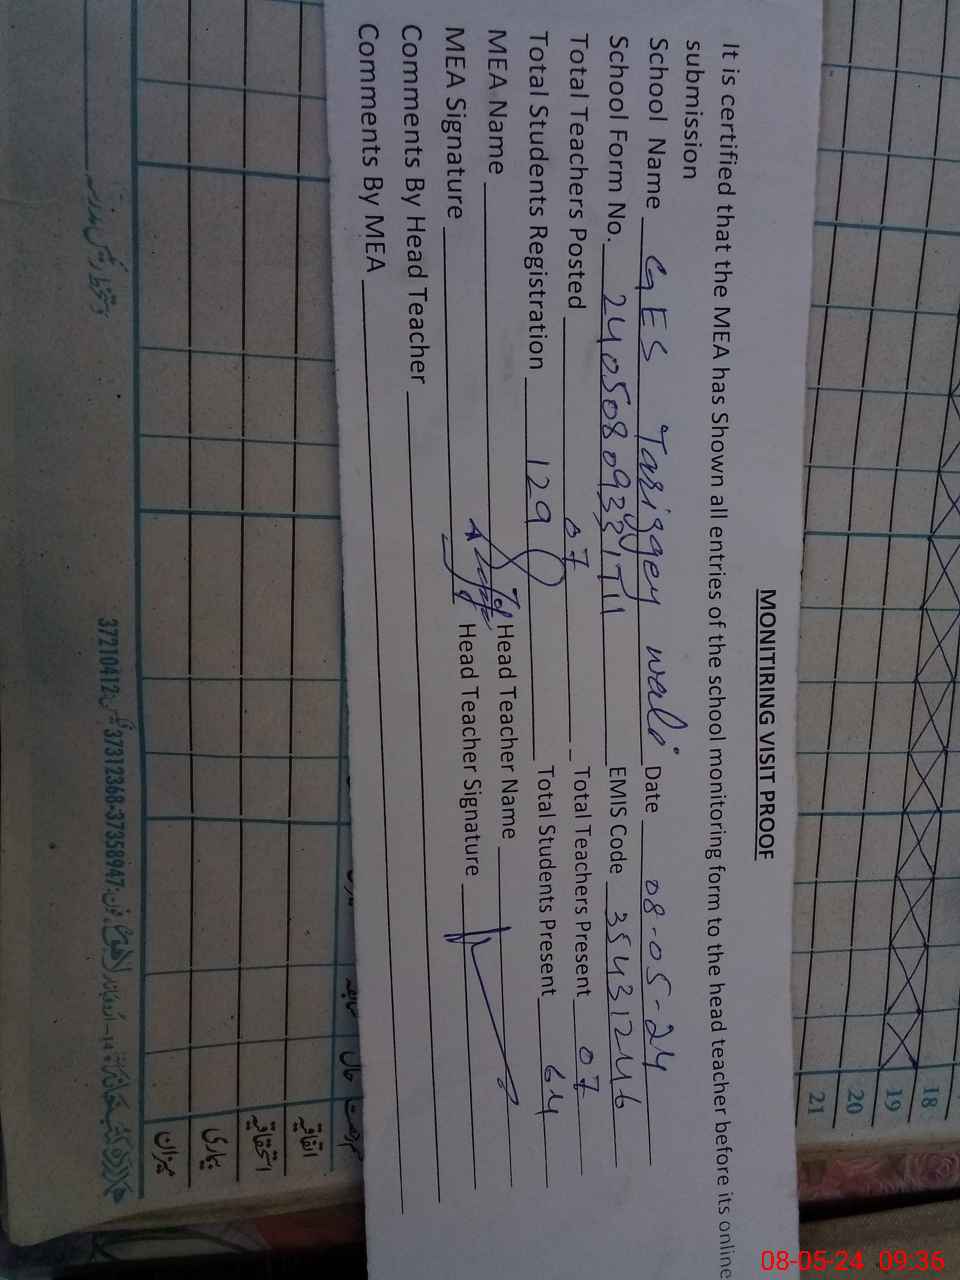 MONITIRING VISIT PROOF
It is certified that the MEA has Shown all entries of the school monitoring form to the head teacher before its online
submission
School Name GES Tariggey wali Date 08-05-24
School Form No. EMIS Code 35431246
Total Teachers Posted 07 Total Teachers Present 07
Total Students Registration 129 Total Students Present 64
MEA Name Head Teacher Name
MEA Signature Head Teacher Signature
Comments By Head Teacher
Comments By MEA
18
19
20
21
اتفاقیہ
استحقاقیہ
بیماری
میزان
37312368-37358947
37210412
08-05-24 09:36